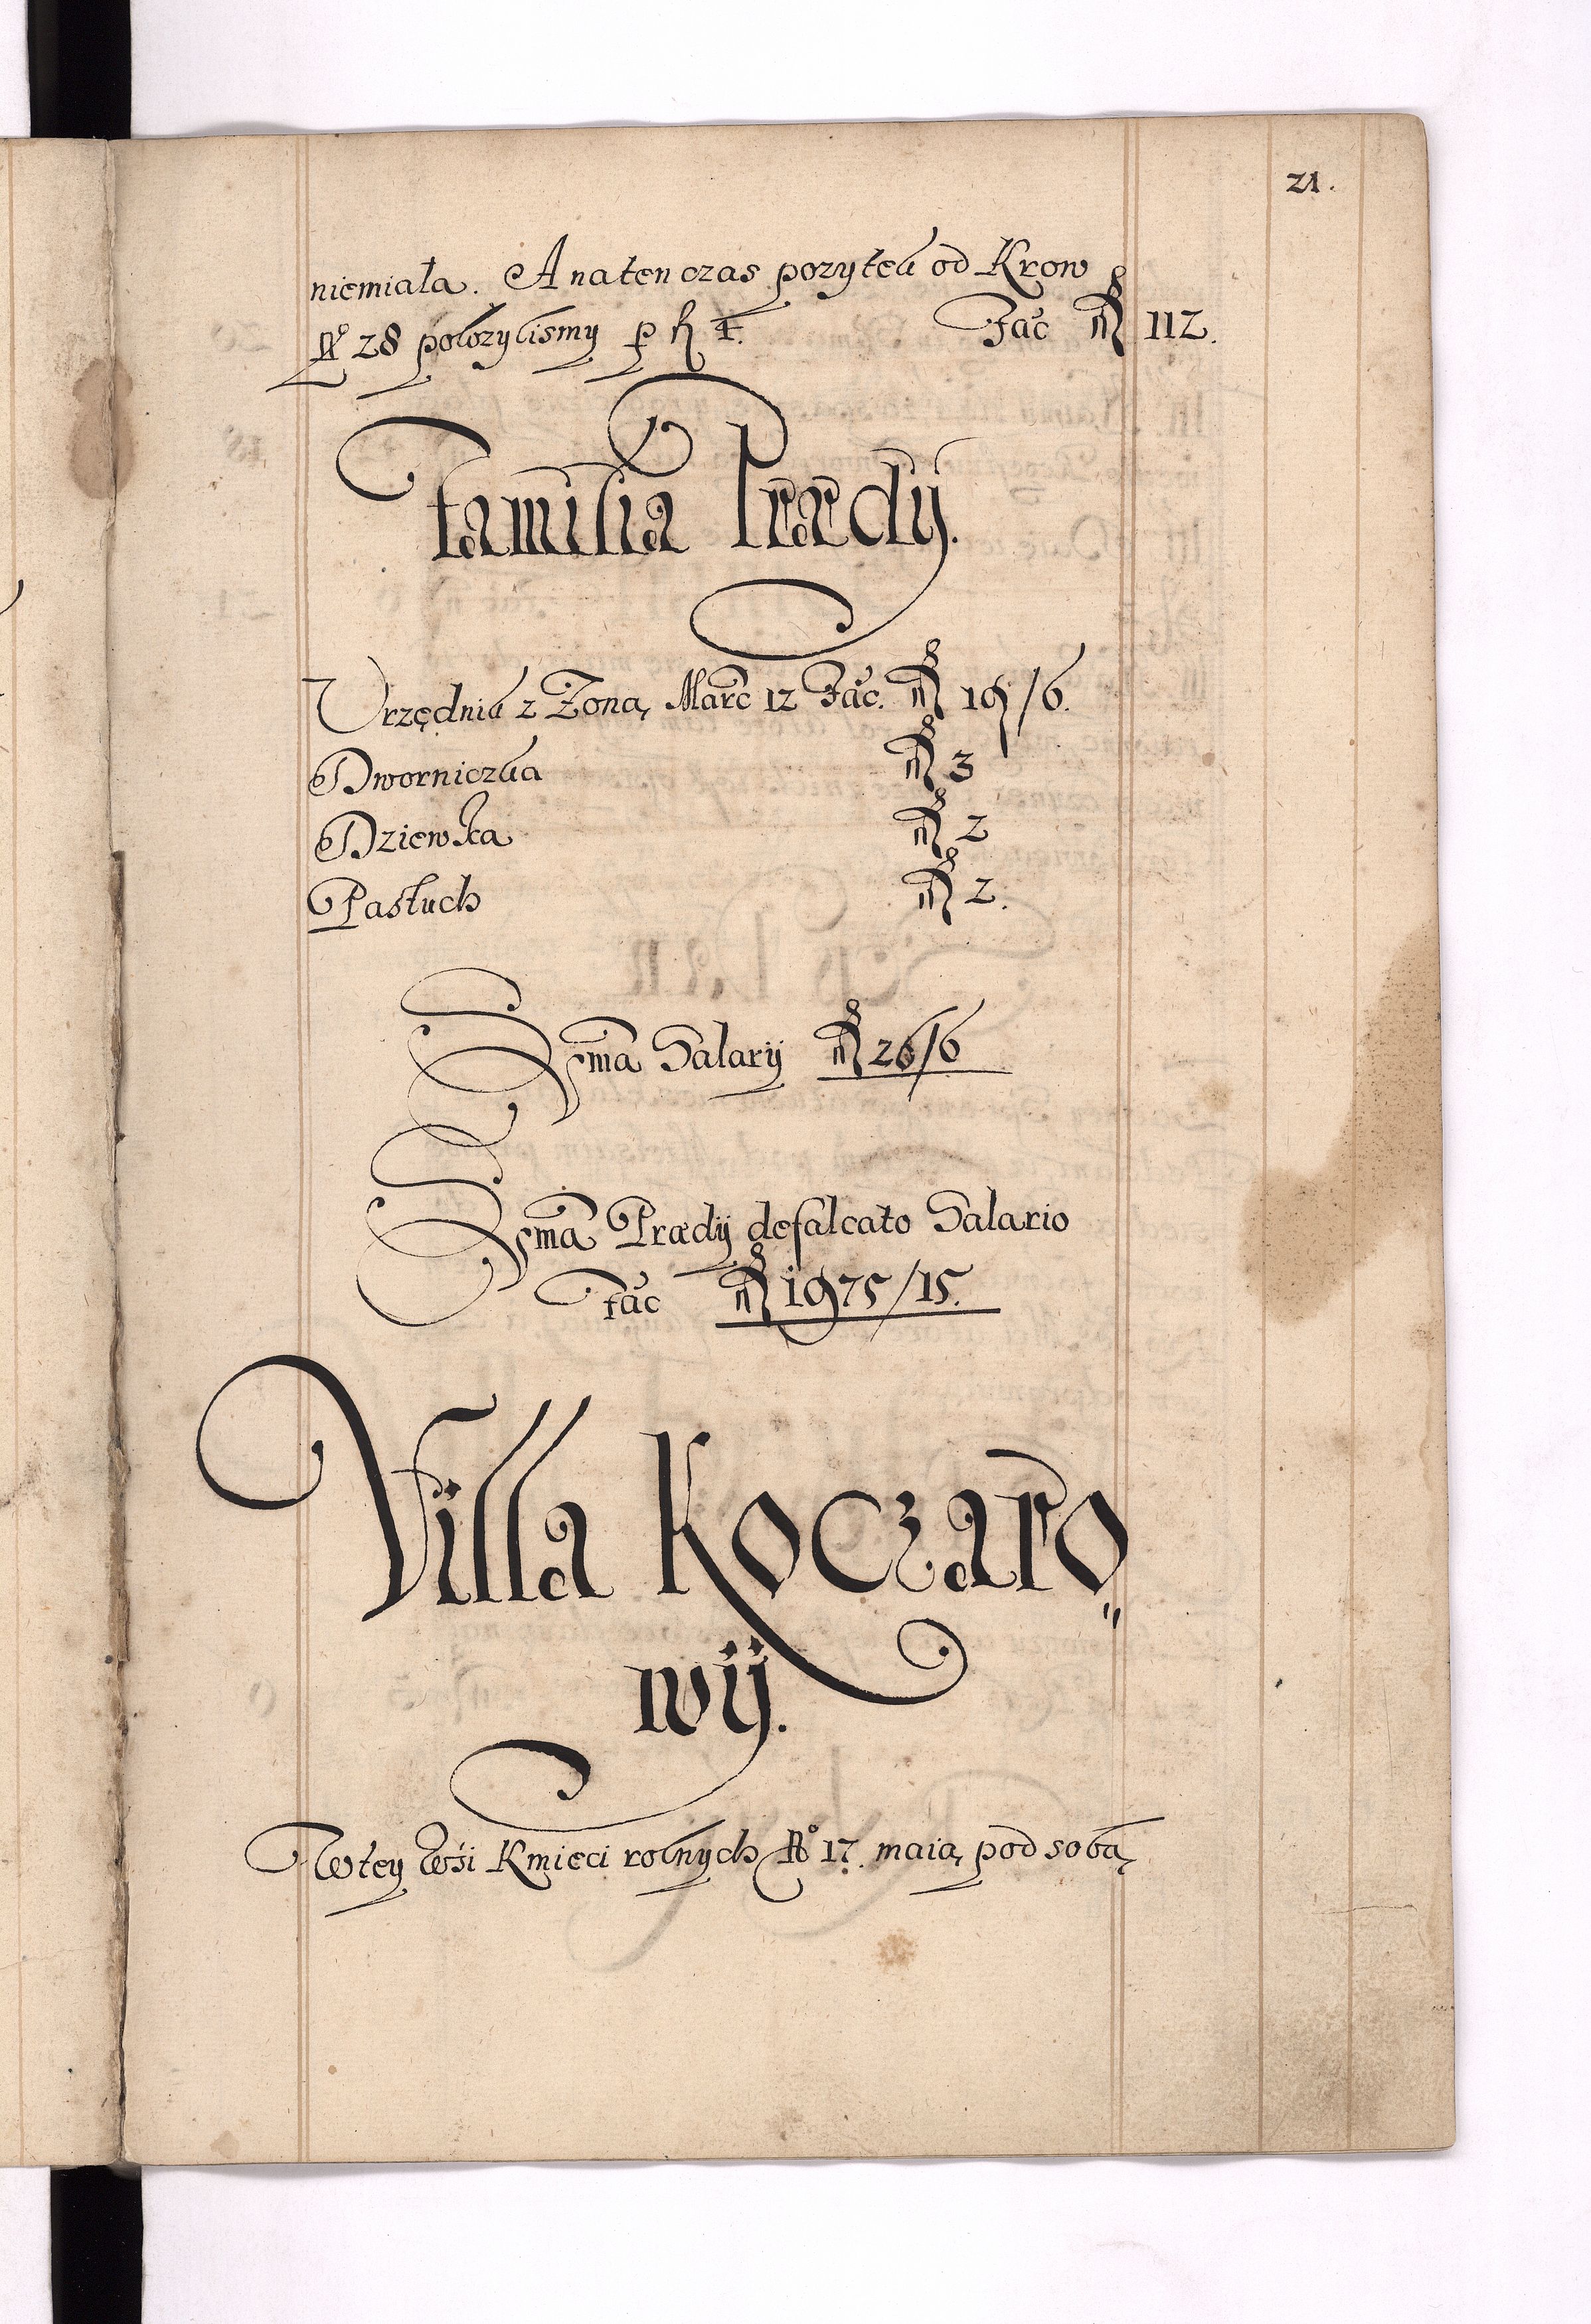 21.
niemiała. A natenczas pozytek od Krow
No 28 polozylismy p fl 4. Fac fl 112.
Familia Prædij.
Vrzędnik z Zoną Marc 12 Fac. fl 19/6.
Dworniczka fl 3
Dziewka fl 2
Pastuch fl 2.
Sma Salarij fl 26/6
Sma Prædij defalcato Salario
Fac fl 1975/15.
Villa Koczaro
wij.
W tey Wsi Kmieci rolnych No 17. maią pod sobą